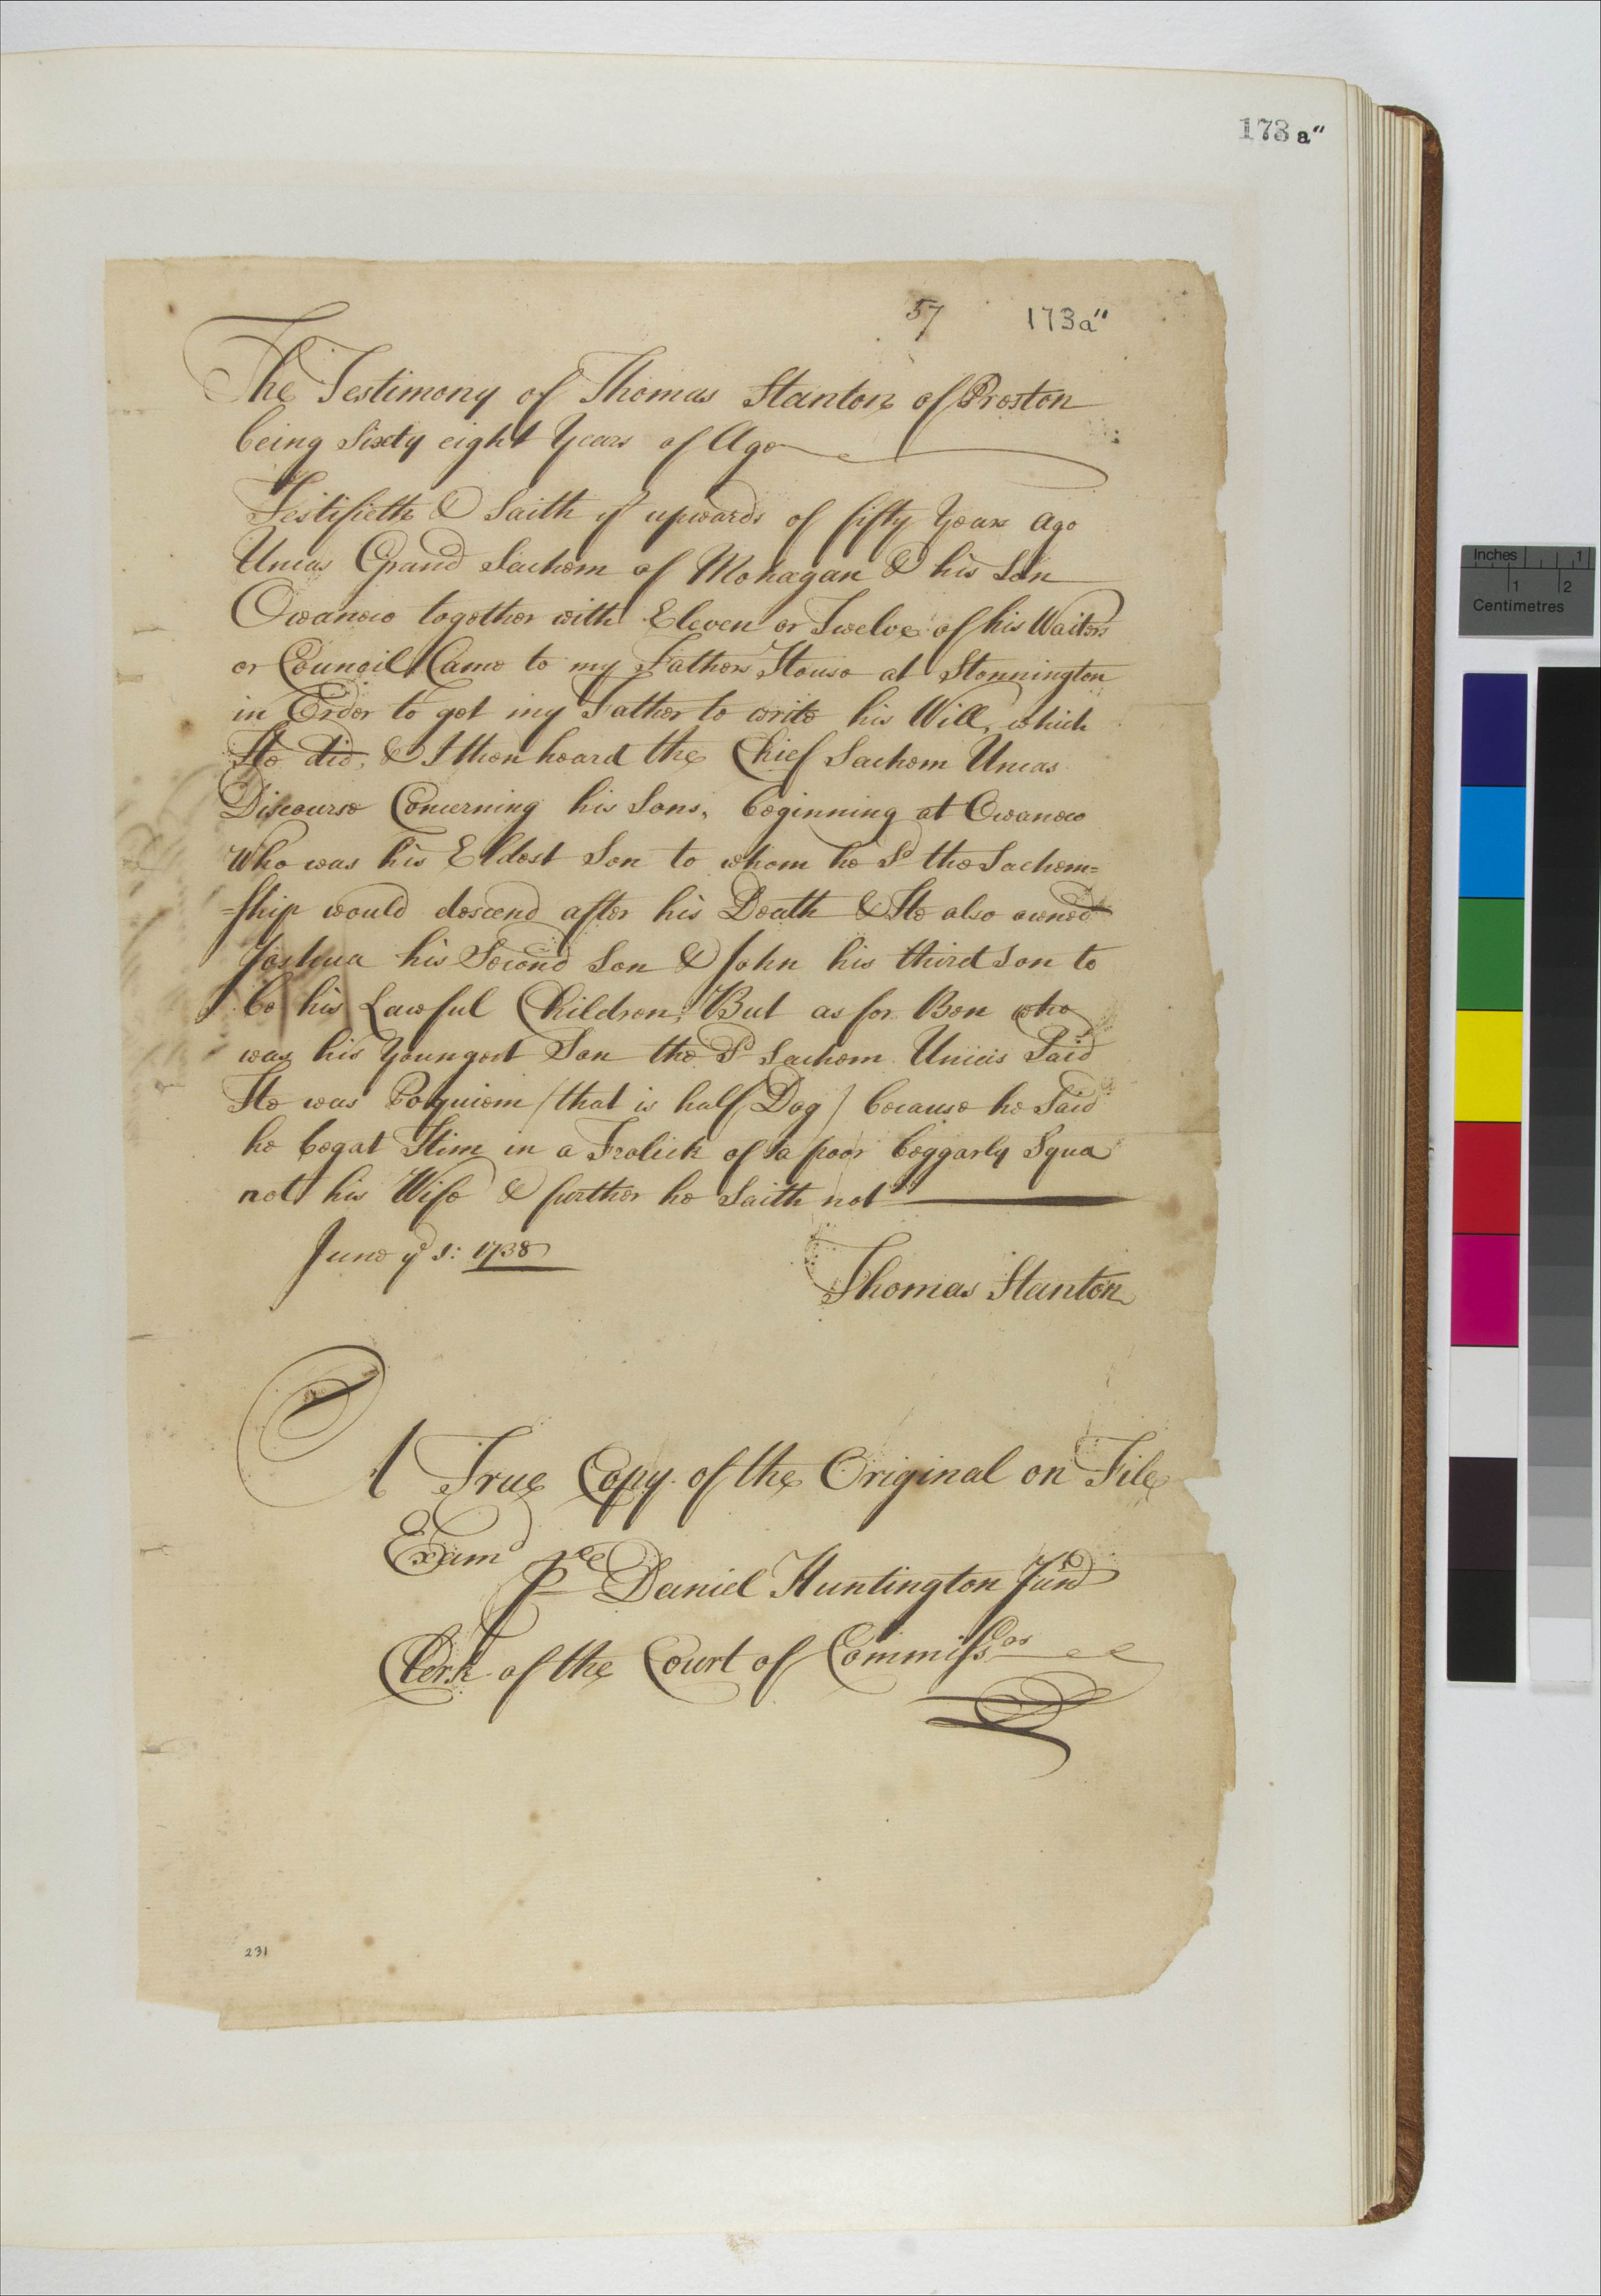 173 a"
57 173a"
The Testimony of Thomas Stanton of Preston
being Sixty eight Years of Age
Testifieth & Saith yt upwards of fifty Years ago
Uncas Grand Sachem of Mohagan & his Son
Owaneco together with Eleven or Twelve of his Waiters
or Council Came to my Fathers House at Stonnington
in Order to get my Father to write his Will, which
He did, & I then heard the Chief Sachem Uncas
Discourse Concerning his Sons, beginning at Owaneco
Who was his Eldest Son to whom he Sd the Sachem=
=ship would descend after his Death & He also owned
Joshua his Second Son & John his third Son to
be his Lawful Children, But as for Ben who
was his Youngest Son the Sd Sachem Uncas Said
He was Poquiem (that is half Dog) because he Said
he begat Him in a Frolick of a poor beggarly Squa
not his Wife & further he Saith not
June ye 1: 1738
Thomas Stanton
A True Copy of the Original on File
Examd
P Daniel Huntington Junr
Clerk of the Court of Commissrs
231
Inches 1
1 2
Centimetres